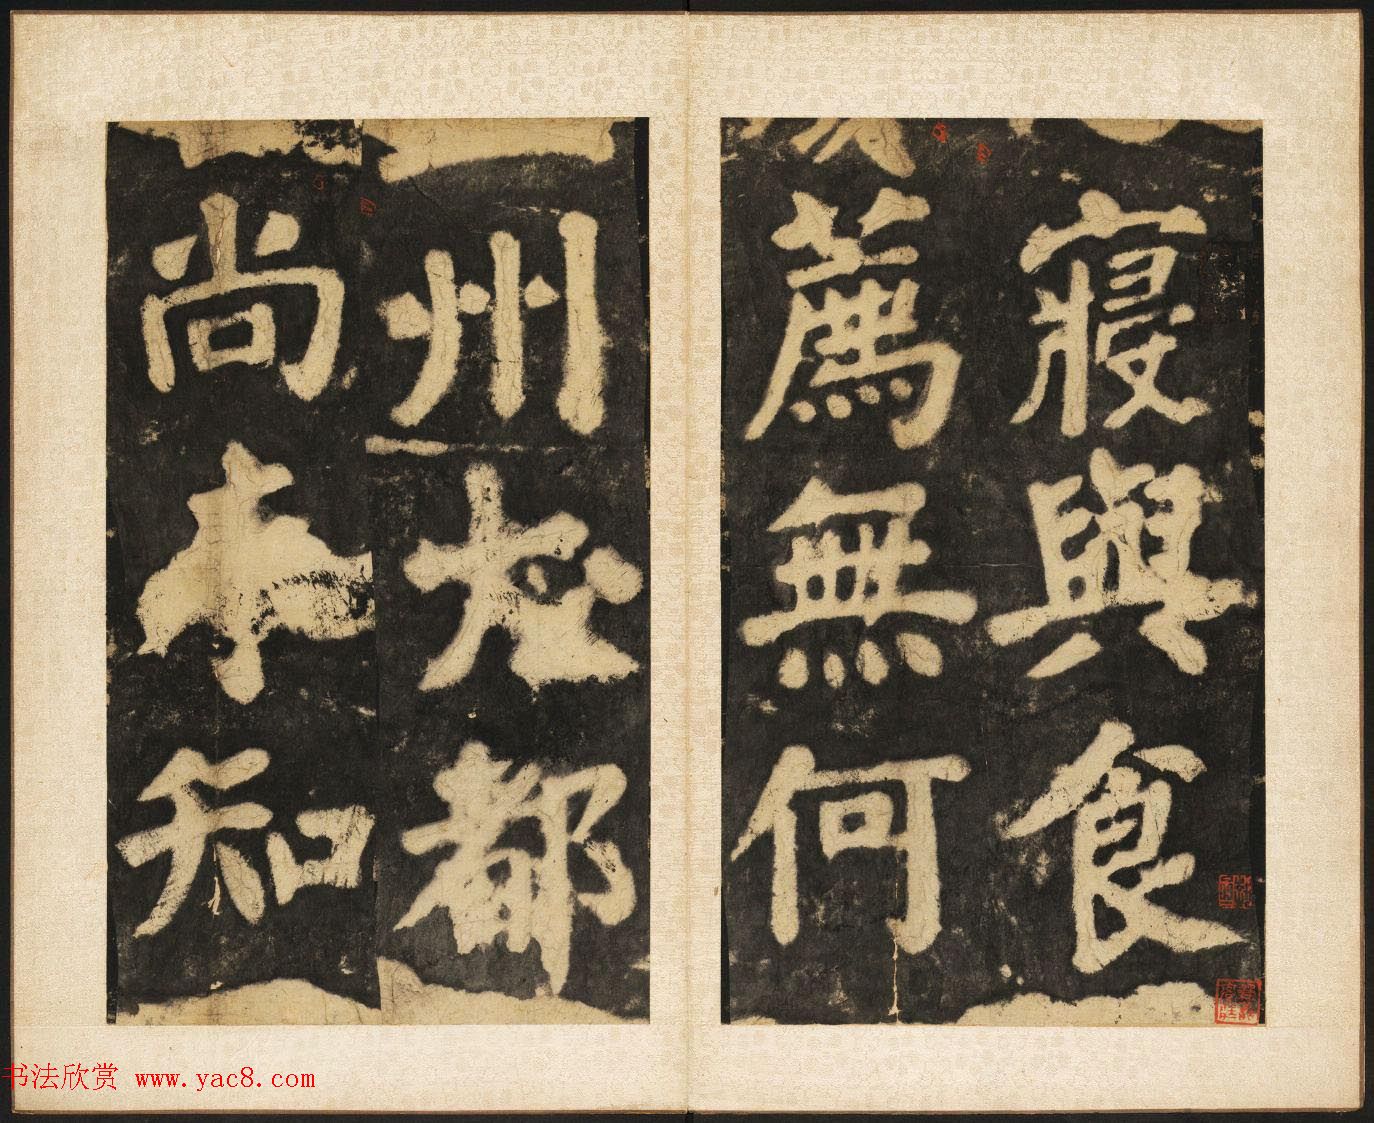 寢與食
薦無何
州都
尚本知
书法欣赏 www.yac8.com